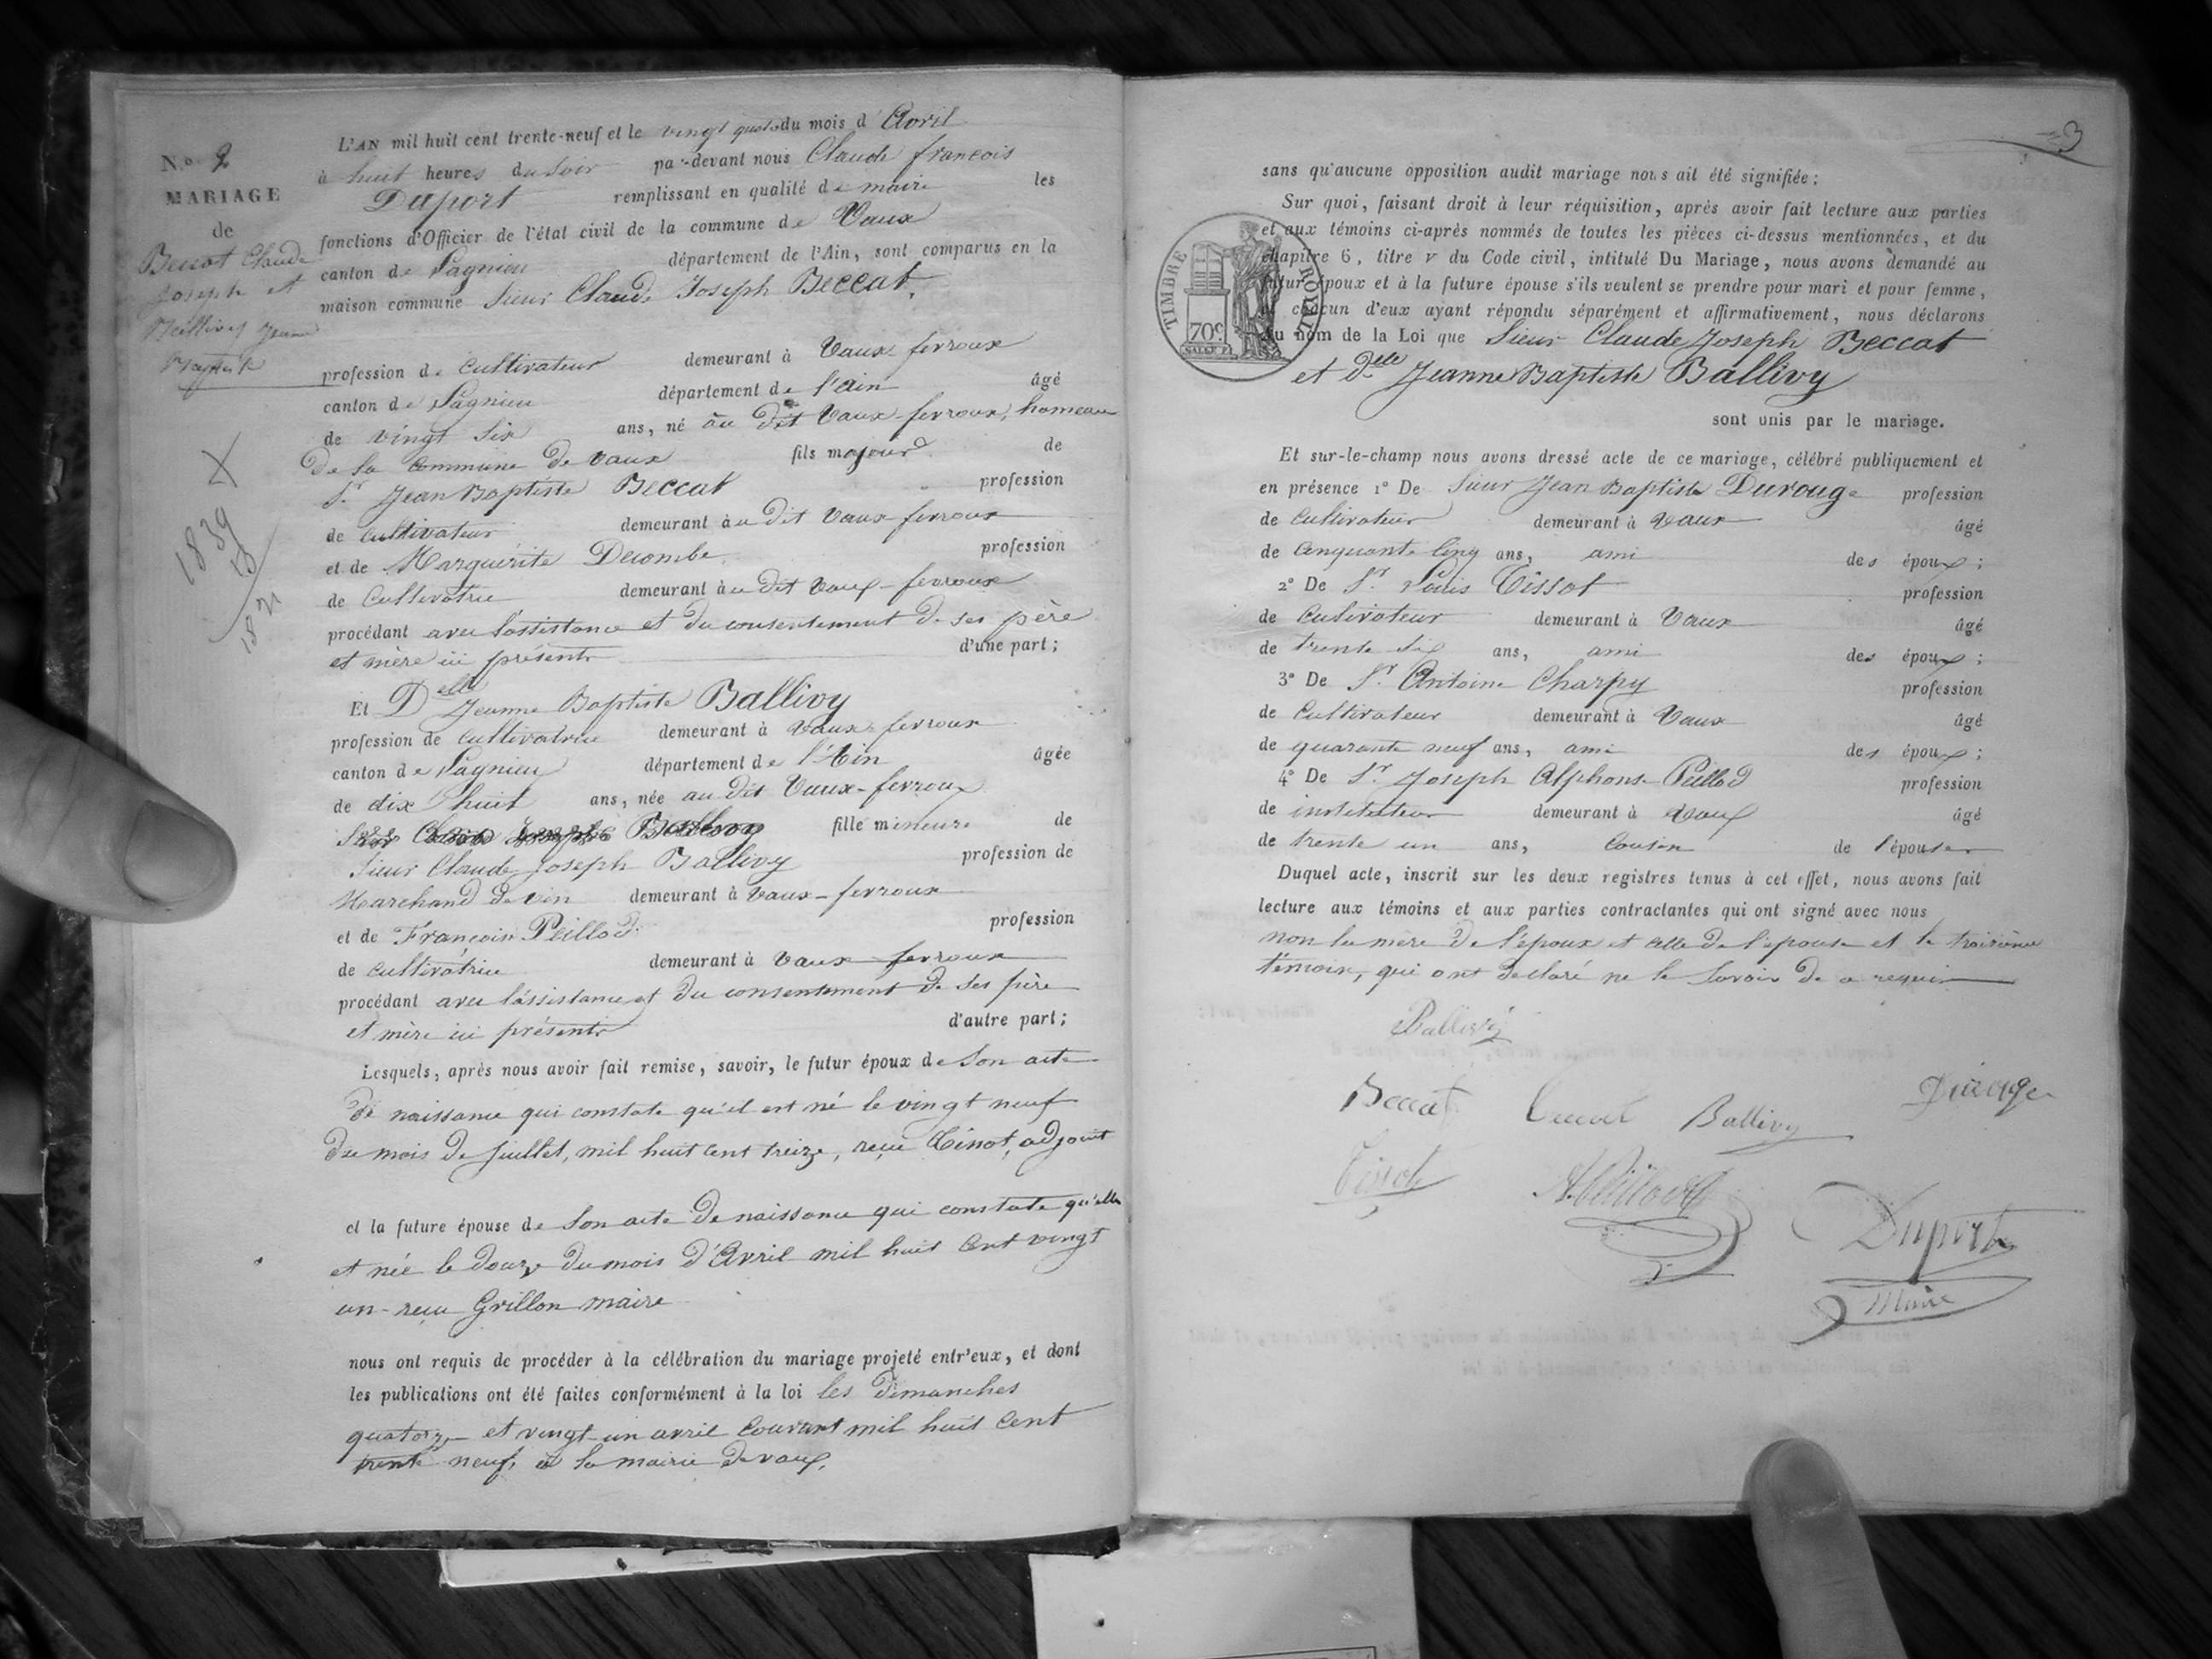 N.º 2
MARIAGE
de
Beccat Claude
Joseph et
Ballivy Jeanne
Baptiste
1839
18
1821
L'AN mil huit cent trente-neuf et le vingt quatre du mois d'Avril
à huit heures du soir par-devant nous Claude françois
Duport remplissant en qualité de maire les
fonctions d'Officier de l'état civil de la commune de Vaux
canton de Lagnieu département de l'Ain, sont comparus en la
maison commune Sieur Claude Joseph Beccat,
profession de Cultivateur demeurant à Vaux-fevroux
canton de Lagnieu département de l'Ain âgé
de vingt six ans, né au dit Vaux-fevroux, hameau
de la Commune de Vaux fils majeur de
S.r Jean Baptiste Beccat profession
de Cultivateur demeurant au dit Vaux-fevroux
et de Marguerite Decombe profession
de Cultivatrice demeurant au dit Vaux-fevroux
procédant avec l'assistance et du consentement de ses père
et mère ici présents d'une part;
Et Delle Jeanne Baptiste Ballivy
profession de Cultivatrice demeurant à Vaux-fevroux
canton de Lagnieu département de l'Ain âgée
de dix huit ans, née au dit Vaux-fevroux
fille mineure de
Sieur Claude Joseph Ballivy profession de
Marchand de vin demeurant à Vaux-fevroux
et de Françoise Peillod profession
de Cultivatrice demeurant à Vaux fevroux
procédant avec l'assistance et du consentement de ses père
et mère ici présents d'autre part;
Lesquels, après nous avoir fait remise, savoir, le futur époux de son acte
de naissance qui constate qu'il est né le vingt neuf
du mois de juillet, mil huit cent treize, reçu Tissot, adjoint
et la future épouse de son acte de naissance qui constate qu'elle
est née le douze du mois d'Avril mil huit cent vingt
un reçu Grillon maire
nous ont requis de procéder à la célébration du mariage projeté entr'eux, et dont
les publications ont été faites conformément à la loi les dimanches
quatorze et vingt-un avril courant mil huit cent
trente neuf, à la mairie de vaux.
3
TIMBRE ROYAL
70c.
sans qu'aucune opposition audit mariage nous ait été signifiée;
Sur quoi, faisant droit à leur réquisition, après avoir fait lecture aux parties
et aux témoins ci-après nommés de toutes les pièces ci-dessus mentionnées, et du
chapitre 6, titre v du Code civil, intitulé Du Mariage, nous avons demandé au
futur époux et à la future épouse s'ils veulent se prendre pour mari et pour femme,
et chacun d'eux ayant répondu séparément et affirmativement, nous déclarons
au nom de la Loi que Sieur Claude Joseph Beccat
et delle Jeanne Baptiste Ballivy
sont unis par le mariage.
Et sur-le-champ nous avons dressé acte de ce mariage, célébré publiquement et
en présence 1º De Sieur Jean Baptiste Durouge profession
de Cultivateur demeurant à Vaux âgé
de Cinquante Cinq ans, ami des époux;
2º De S.r Louis Tissot profession
de Cultivateur demeurant à Vaux âgé
de trente six ans, ami des époux;
3º De S.r Antoine Charpy profession
de Cultivateur demeurant à Vaux âgé
de quarante neuf ans, ami des époux;
4º De S.r Joseph Alphonse Peillod profession
de instituteur demeurant à Vaux âgé
de trente un ans, Cousin de l'épouse
Duquel acte, inscrit sur les deux registres tenus à cet effet, nous avons fait
lecture aux témoins et aux parties contractantes qui ont signé avec nous
non la mère de l'époux et celle de l'épouse et le troisième
témoin, qui ont déclaré ne le savoir de ce requis
Ballivy
Beccat Beccat Ballivy Durouge
Tissot A. Peillod Duport
Maire